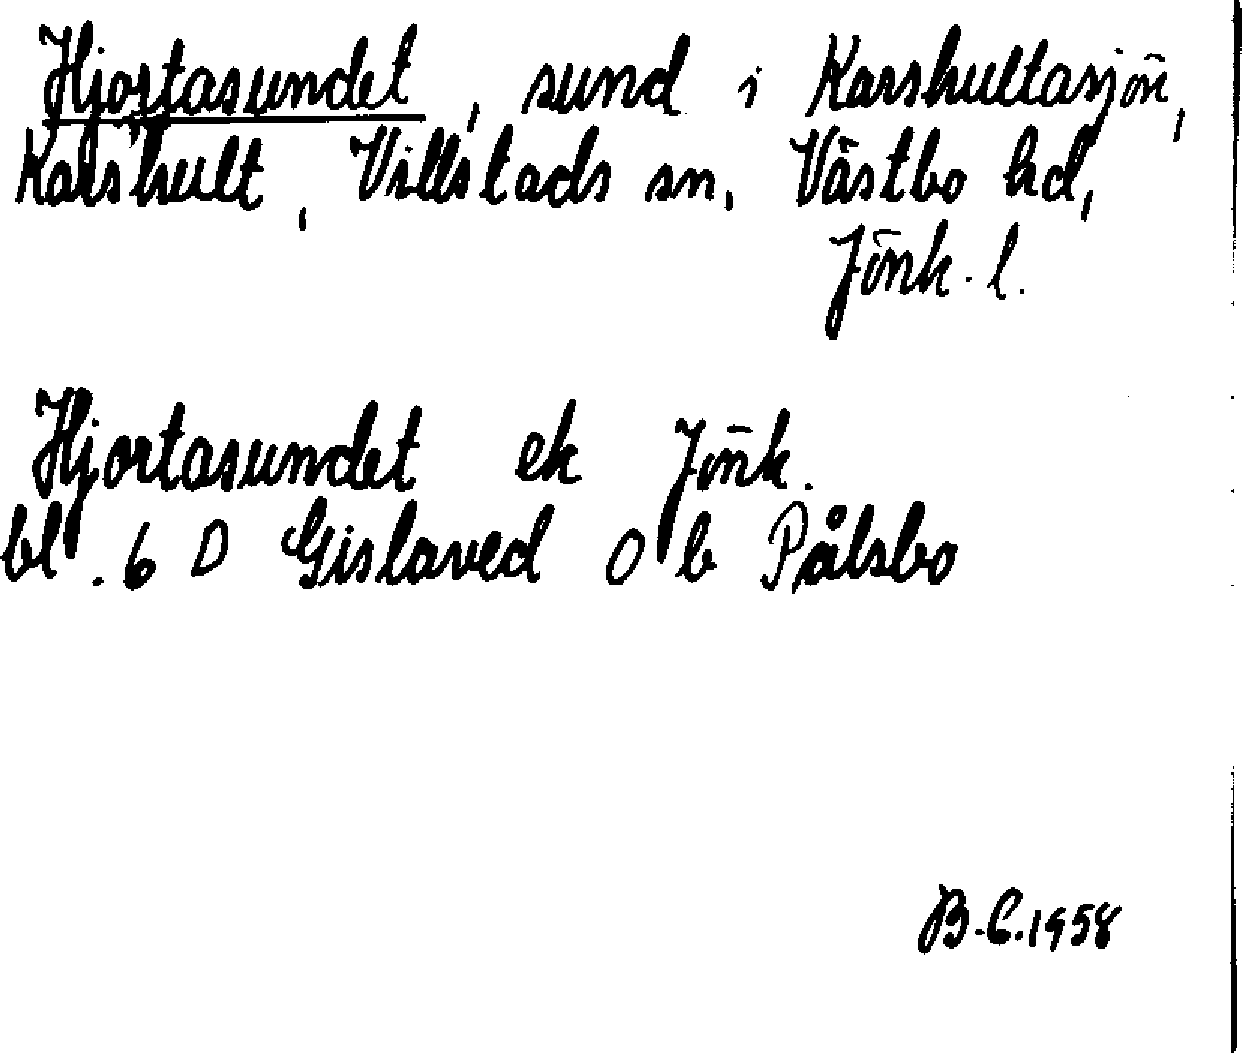 Hjortasundet, sund i Karshultasjön,
Karshult, Villstads sn, Västbo hd,
Jönk. l.
Hjortasundet ek Jönk.
bl. 6 D Gislaved 0 b Pålsbo
B.C. 1958